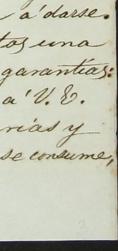 á darse.
tos una
garantías:
a' V. E.
rias y
se consume,